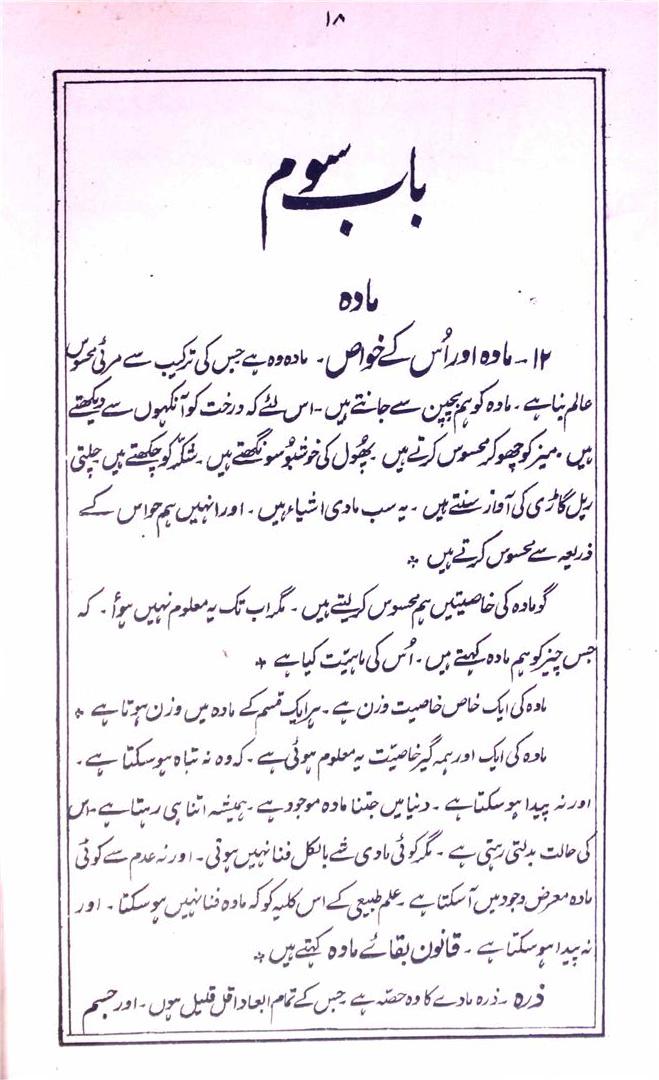 ۱۸
باب سوم
مادہ
۱۲۔ مادہ اور اُس کے خواص۔ مادہ وہ ہے جس کی ترکیب سے مرئی و محسوس
عالم بنا ہے۔ مادہ کو ہم بچپن سے جانتے ہیں۔ اس لئے کہ درخت کو آنکھوں سے دیکھتے
ہیں۔ میز کو چھو کر محسوس کرتے ہیں۔ پھُول کی خوشبُو سونگھتے ہیں۔ شکّر کو چکھتے ہیں۔ چلتی
ریل گاڑی کی آواز سنتے ہیں۔ یہ سب مادی اشیاء ہیں۔ اور انہیں ہم حواس کے
ذریعہ سے محسوس کرتے ہیں *
گو مادہ کی خاصیتیں ہم محسوس کر لیتے ہیں۔ مگر اب تک یہ معلوم نہیں ہوُا۔ کہ
جس چیز کو ہم مادہ کہتے ہیں۔ اُس کی ماہیّت کیا ہے *
مادہ کی ایک خاص خاصیت وزن ہے۔ ہر ایک قسم کے مادہ میں وزن ہوتا ہے *
مادہ کی ایک اور ہمہ گیر خاصیّت یہ معلوم ہوئی ہے۔ کہ وہ نہ تباہ ہو سکتا ہے۔
اور نہ پیدا ہو سکتا ہے۔ دنیا میں جتنا مادہ موجود ہے۔ ہمیشہ اتنا ہی رہتا ہے۔ اس
کی حالت بدلتی رہتی ہے۔ مگر کوئی مادی شے بالکل فنا نہیں ہوتی۔ اور نہ عدم سے کوئی
مادہ معرض وجود میں آ سکتا ہے۔ علم طبیعی کے اس کلیہ کو کہ مادہ فنا نہیں ہو سکتا۔ اور
نہ پیدا ہو سکتا ہے۔ قانون بقائے مادہ کہتے ہیں *
ذرہ۔ ذرہ مادے کا وہ حصّہ ہے جس کے تمام ابعاد اقل قلیل ہوں۔ اور جسم